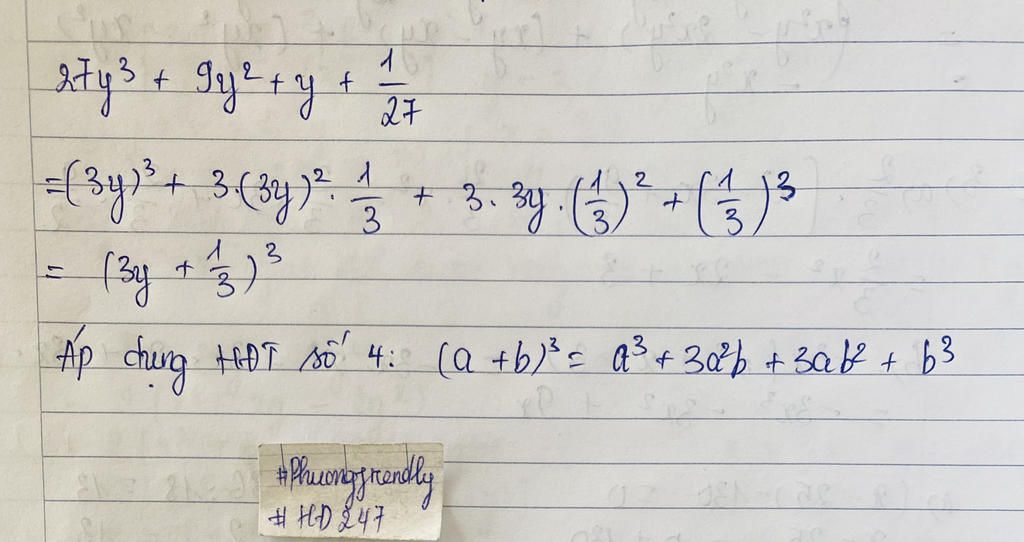 27y³ + 9y² + y + 1/27
=(3y)³ + 3.(3y)².1/3 + 3.3y.(1/3)² + (1/3)³
= (3y + 1/3)³
Áp dụng HĐT số 4: (a + b)³ = a³ + 3a²b + 3ab² + b³
#Phuongfriendly
#HD247